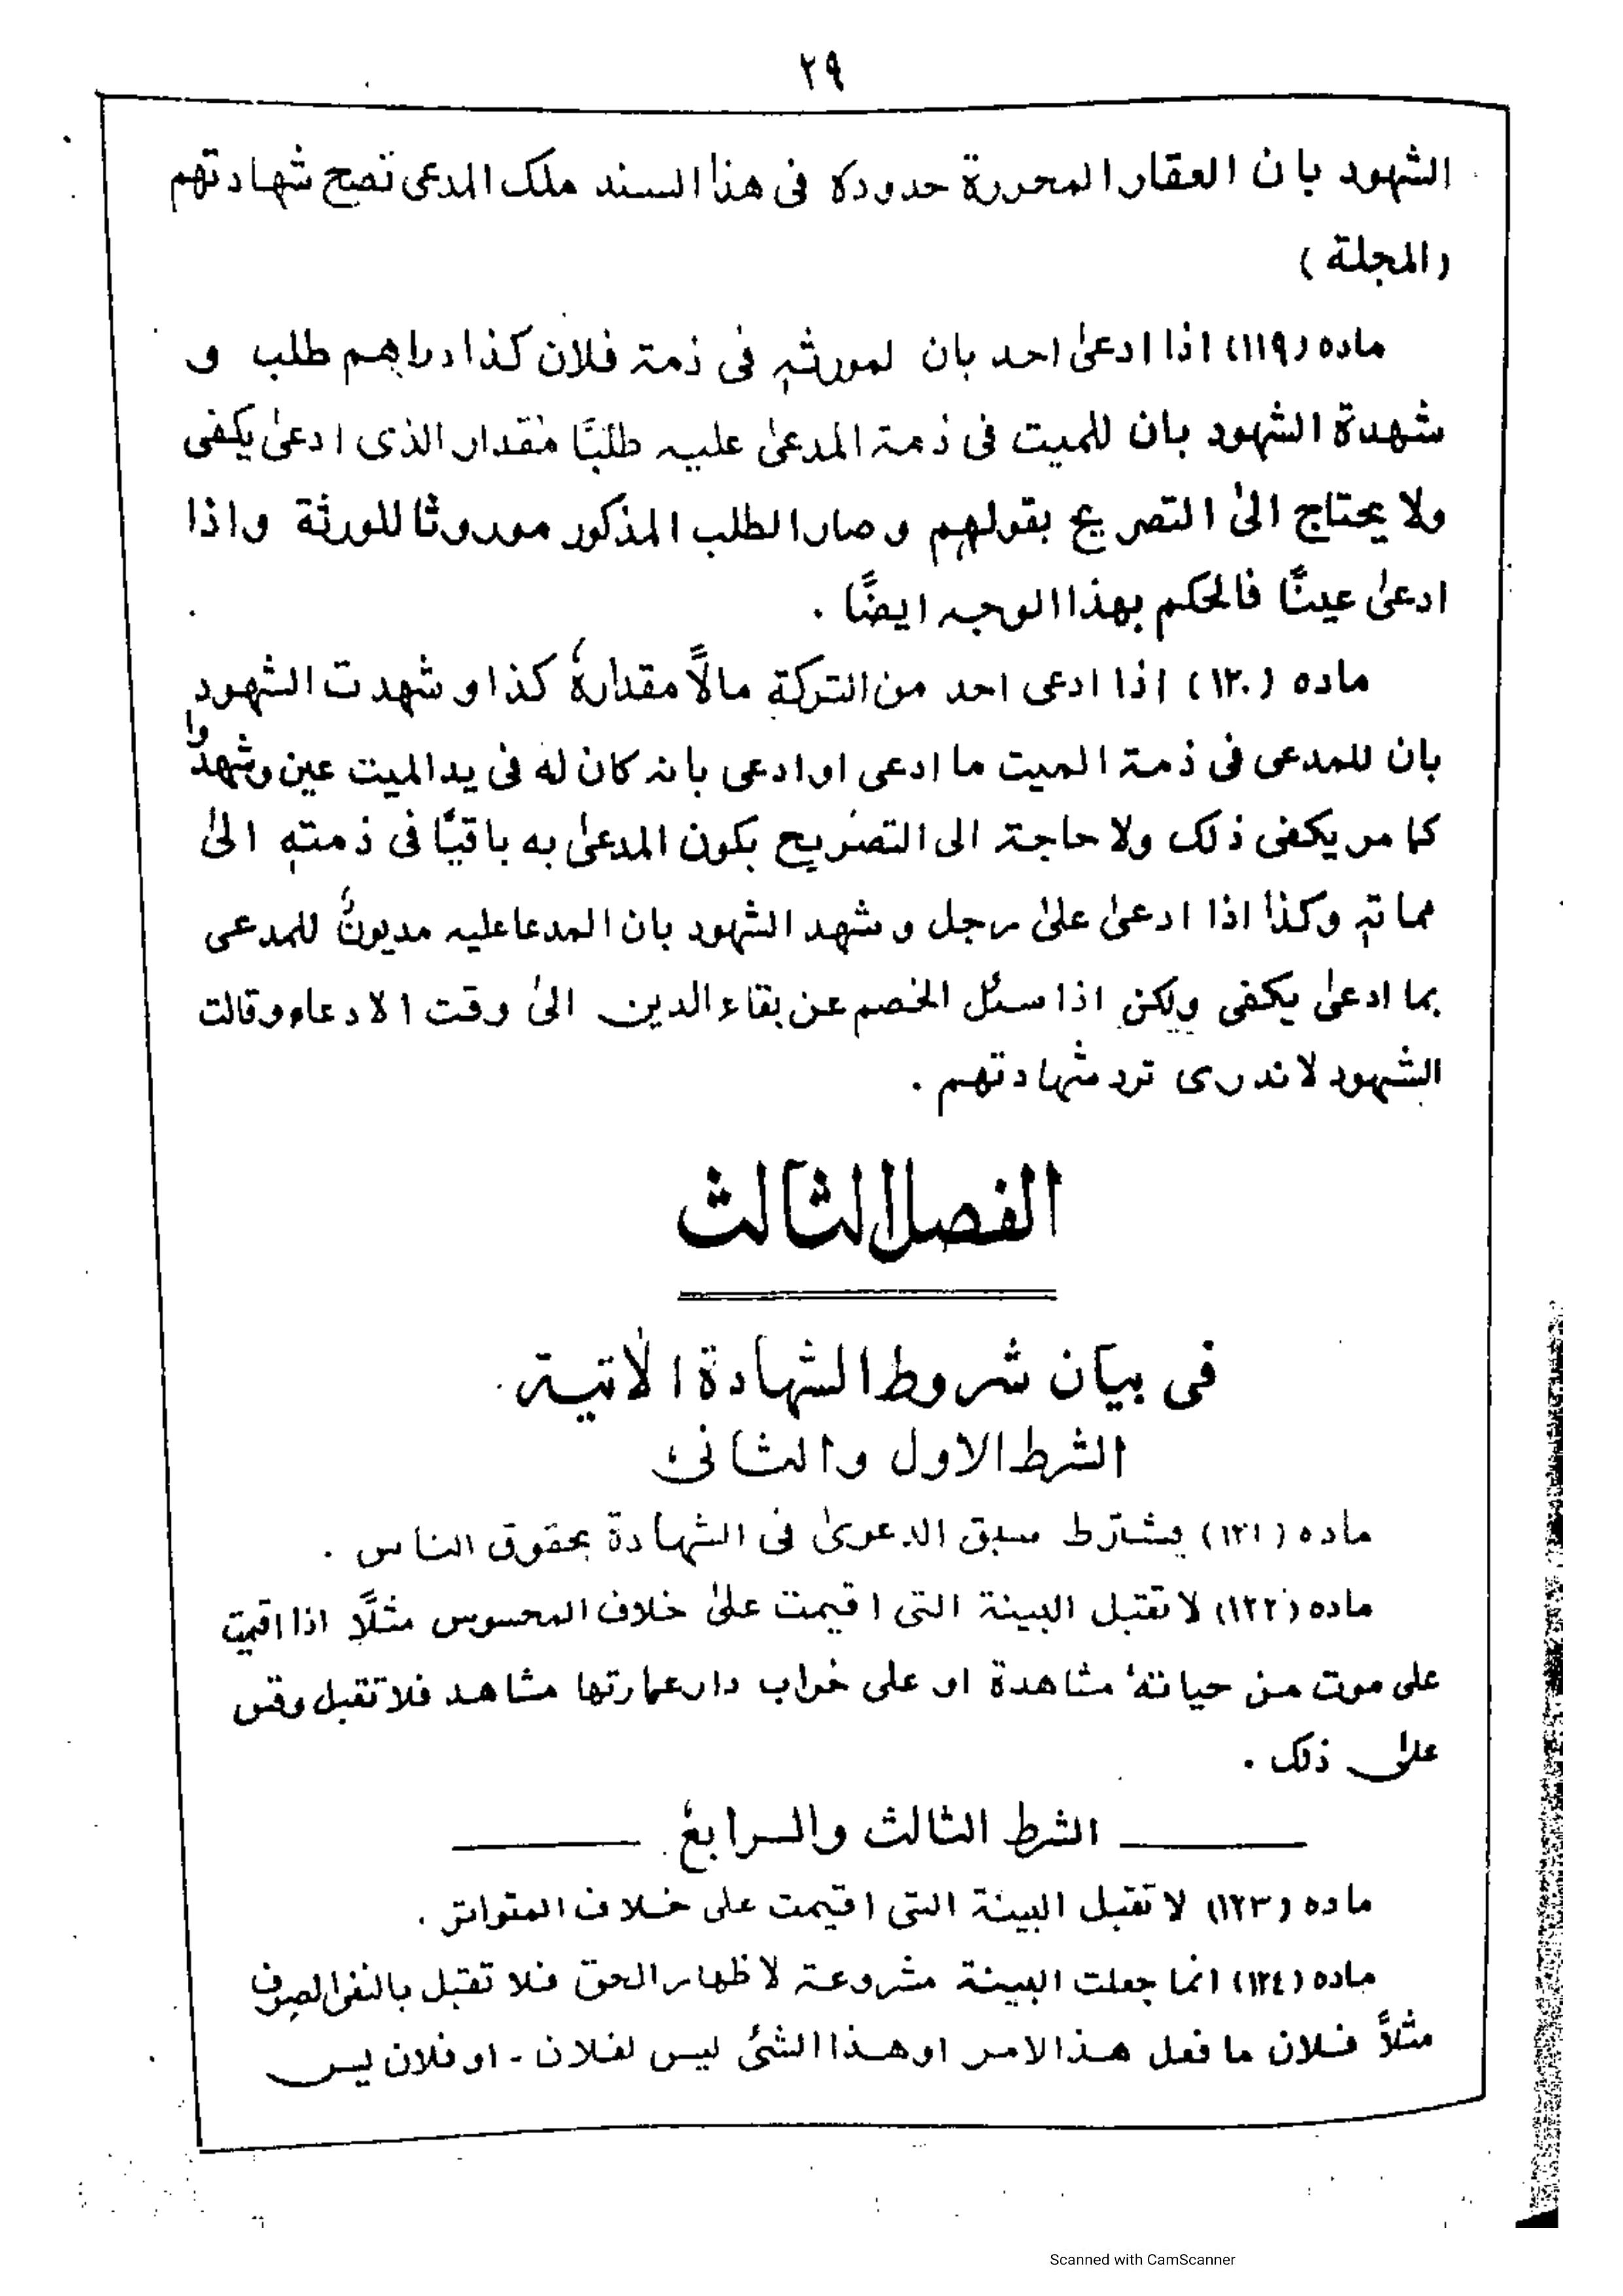 ٢٩
الشهود بان العقار المحررة حدوده فى هذا السند ملك المدعى تصح شهادتهم
(المجلة)
ماده (١١٩) اذا ادعىٰ احد بان لمورثهٖ فى ذمة فلان كذا دراهم طلب و
شهدة الشهود بان للميت فى ذمة المدعىٰ عليه طلبًا مقدار الذى ادعىٰ يكفى
ولا يحتاج الىٰ التصريح بقولهم و صار الطلب المذكور موروثا للورثة واذا
ادعىٰ عينًا فالحكم بهذا الوجه ايضًا .
ماده (١٢٠) اذا ادعى احد من التركة مالًا مقدارهٗ كذا و شهدت الشهود
بان للمدعى فى ذمة الميت ما ادعى او ادعى بانه كان له فى يد الميت عين وشهدوا
كما مر يكفى ذلك ولا حاجة الى التصريح بكون المدعىٰ به باقيًا فى ذمتهٖ الىٰ
مماتهٖ وكذا اذا ادعىٰ علىٰ رجل و شهد الشهود بان المدعا عليه مديونٌ للمدعى
بما ادعىٰ يكفى ولكن اذا سئل الخصم عن بقاء الدين الىٰ وقت الادعاء وقالت
الشهود لا ندرى ترد شهادتهم .
الفصل الثالث
فى بيان شروط الشهادة الاٰتية .
الشرط الاول والثانى
ماده (١٢١) يشترط سبق الدعوىٰ فى الشهادة بحقوق الناس .
ماده (١٢٢) لا تقبل البينة التى اقيمت علىٰ خلاف المحسوس مثلًا اذا اقيمت
على موت من حياتهٗ مشاهدة او على خراب دار عمارتها مشاهد فلا تقبل وقس
علىٰ ذلك .
الشرط الثالث والرابع
ماده (١٢٣) لا تقبل البينة التى اقيمت على خلاف المتواتر .
ماده (١٢٤) انما جعلت البينة مشروعة لاظهار الحق فلا تقبل بالنفى الصرف
مثلًا فلان ما فعل هذا الامر او هذا الشئ ليس لفلان - او فلان ليس
Scanned with CamScanner